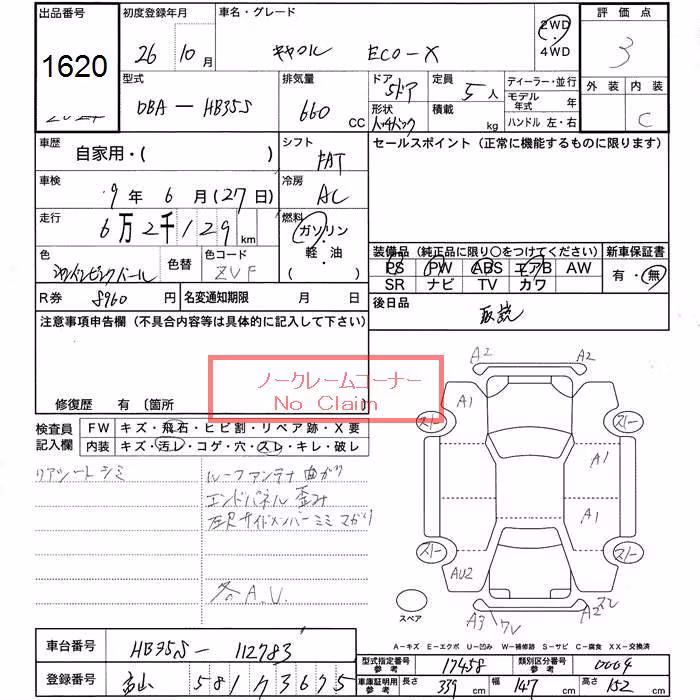 出品番号 初度登録年月 車名・グレード 評価点
1620 26 10月 キャロル ECO-X 2WD・4WD 3
型式 排気量 ドア 定員 ディーラー・並行 外装 内装
DBA-HB35S 660 CC 5ドア 5人 モデル年式 年 C
形状 積載 kg ハンドル 左・右
車歴 自家用・( ) シフト FAT セールスポイント (正常に機能するものに限ります)
車検 9年 6月(27日) 冷房 AC
走行 6万2千129km 燃料 ガソリン・軽油( )
装備品 (純正品に限り○をつけてください) 新車保証書
色 色替 色コード ZVF PS PW ABS エアB AW 有・無
SR ナビ TV カワ
R券 8960円 名変通知期限 月 日 後日品 取説
注意事項申告欄 (不具合内容等は具体的に記入して下さい)
ノークレームコーナー
No Claim
修復歴 有 (箇所 )
検査員記入欄 FW キズ・飛石・ヒビ割・リペア跡・X要
内装 キズ・汚レ・コゲ・穴・スレ・キレ・破レ
リアシート シミ ルーフアンテナ 曲がり
エンドパネル 歪み
左Rサイドメンバーミミ マガリ
各A.U.
A2 A2
A1
スレ スレ
A1
A1
スレ スレ
AU2
スペア A3
A-キズ E-エクボ U-凹み W-補修跡 S-サビ C-腐食 XX-交換済
車台番号 HB35S-112783 型式指定番号 参考 17458 類別区分番号 参考 0004
登録番号 富山 581 73675 車庫証明用 参考 長さ 339cm 幅 147cm 高さ 152cm